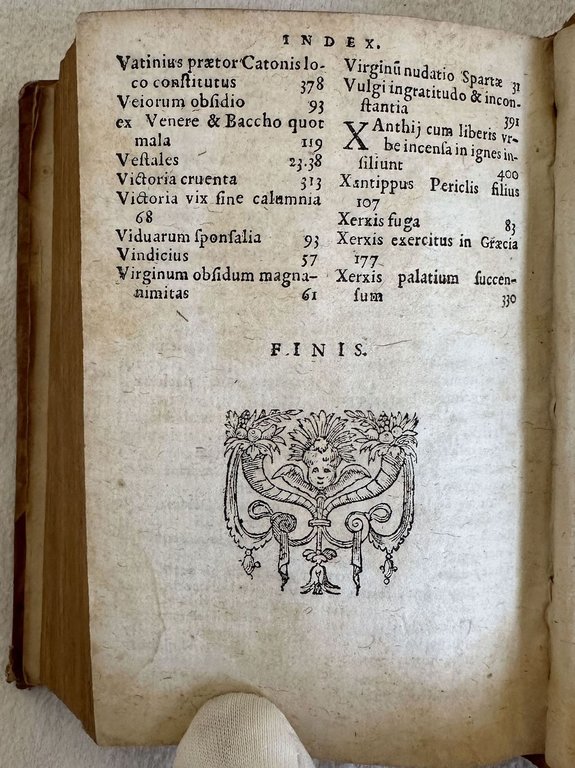 INDEX.
Vatinius prætor Catonis lo-
co conſtitutus 378
Veiorum obſidio 93
ex Venere & Baccho quot
mala 119
Veſtales 23.38
Victoria cruenta 313
Victoria vix ſine calumnia
68
Viduarum ſponſalia 93
Vindicius 57
Virginum obſidum magna-
nimitas 61
Virginū nudatio Spartæ 31
Vulgi ingratitudo & incon-
ſtantia 391
XAnthij cum liberis vr-
be incenſa in ignes in-
ſiliunt 400
Xantippus Periclis filius
107
Xerxis fuga 83
Xerxis exercitus in Græcia
177
Xerxis palatium ſuccen-
ſum 330
FINIS.